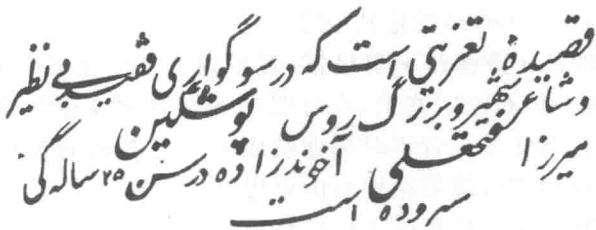 قصیدهٔ تعزیتی است که در سوگواری فقید بی نظیر
و شاعر شهیر و بزرگ روس پوشکین
میرزا فتحعلی آخوندزاده در سن ۲۵ ساله گی
سروده است